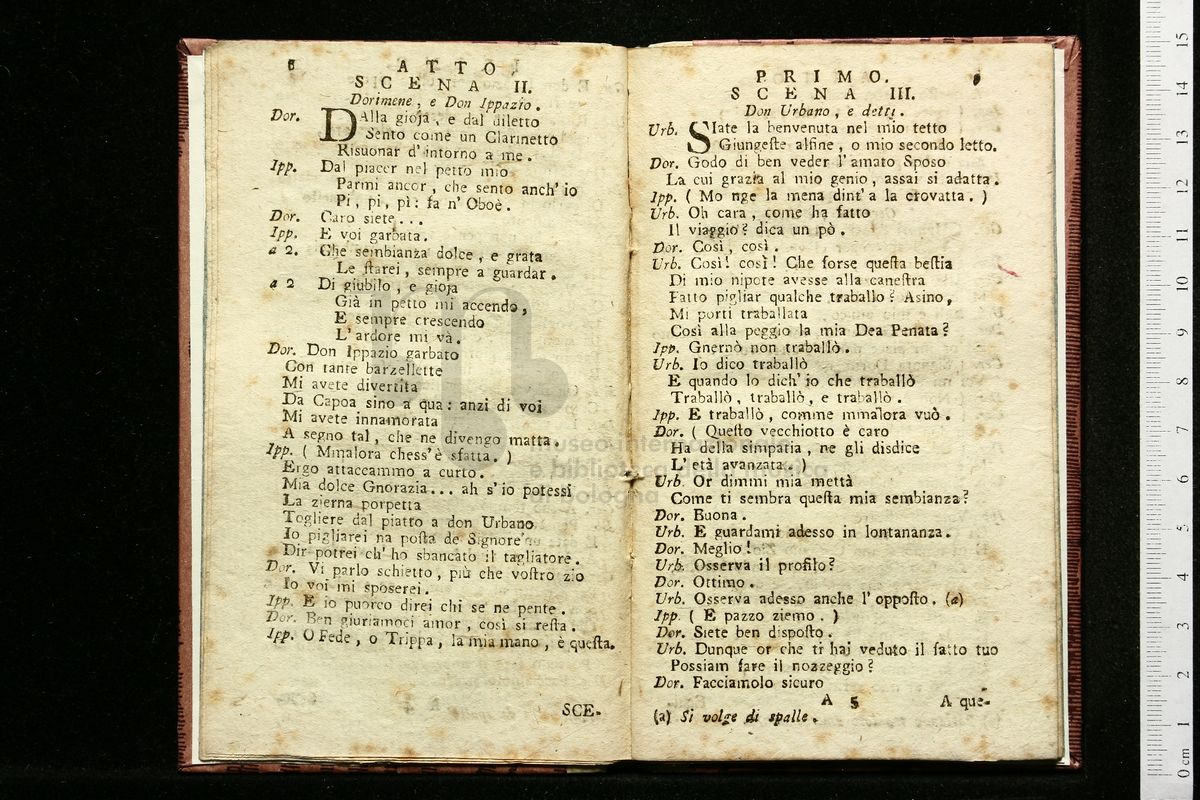 8
ATTO.
SCENA II.
Dorimene, e Don Ippazio.
Dor. DAlla gioja, e dal diletto
Sento come un Clarinetto
Risuonar d'intorno a me.
Ipp. Dal piacer nel petto mio
Parmi ancor, che sento anch'io
Pi, pi, pì: fa n'Oboè.
Dor. Caro siete...
Ipp. E voi garbata.
a 2. Che sembianza dolce, e grata
Le starei, sempre a guardar.
a 2 Di giubilo, e gioja
Già in petto mi accendo,
E sempre crescendo
L'ardore mi và.
Dor. Don Ippazio garbato
Con tante barzellette
Mi avete divertita
Da Capoa sino a qua: anzi di voi
Mi avete innamorata
A segno tal, che ne divengo matta.
Ipp. (Mmalora chess'è sfatta.)
Ergo attaccammo a curto.
Mia dolce Gnorazia... ah s'io potessi
La zierna porpetta
Togliere dal piatto a don Urbano
Io pigliarei na posta de Signore
Dir potrei ch'ho sbancato il tagliatore.
Dor. Vi parlo schietto, più che vostro zio
Io voi mi sposerei.
Ipp. E io puorco direi chi se ne pente.
Dor. Ben giuriamoci amor, così si resta.
Ipp. O Fede, o Trippa, la mia mano, è questa.
SCE-
PRIMO.
SCENA III.
Don Urbano, e detti.
Urb. SIate la benvenuta nel mio tetto
Giungeste alfine, o mio secondo letto.
Dor. Godo di ben veder l'amato Sposo
La cui grazia al mio genio, assai si adatta.
Ipp. (Mo nge la mena dint'a la crovatta.)
Urb. Oh cara, come ha fatto
Il viaggio? dica un pò.
Dor. Così, così.
Urb. Così! così! Che forse questa bestia
Di mio nipote avesse alla canestra
Fatto pigliar qualche traballo? Asino,
Mi porti traballata
Così alla peggio la mia Dea Penata?
Ipp. Gnernò non traballò.
Urb. Io dico traballò
E quando lo dich'io che traballò
Traballò, traballò, e traballò.
Ipp. E traballò, comme mmalora vuò.
Dor. (Questo vecchiotto è caro
Ha della simpatia, ne gli disdice
L'età avanzata.)
Urb. Or dimmi mia mettà
Come ti sembra questa mia sembianza?
Dor. Buona.
Urb. E guardami adesso in lontananza.
Dor. Meglio!
Urb. Osserva il profilo?
Dor. Ottimo.
Urb. Osserva adesso anche l'opposto. (a)
Ipp. (E pazzo ziemo.)
Dor. Siete ben disposto.
Urb. Dunque or che ti hai veduto il fatto tuo
Possiam fare il nozzeggio?
Dor. Facciamolo sicuro
A 5 A que-
(a) Si volge di spalle.
museo internazionale
e biblioteca della musica
di Bologna
0 cm 1 2 3 4 5 6 7 8 9 10 11 12 13 14 15